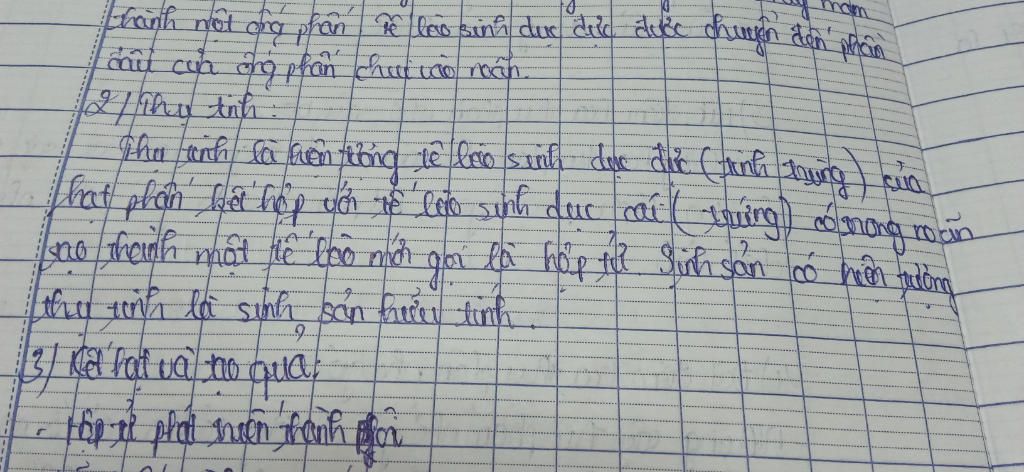 nảy mầm
thành một ống phấn tế bào sinh dục đực được chuyển đến phần
đầu của ống phấn chui vào noãn.
2/ Thụ tinh:
Thụ tinh là hiện tượng tế bào sinh dục đực (tinh trùng) của
hạt phấn kết hợp với tế bào sinh dục cái (trứng) có trong noãn
tạo thành một tế bào mới gọi là hợp tử Sinh sản có hiện tượng
thụ tinh là sinh sản hữu tính.
3/ Kết hạt và tạo quả:
- Hợp tử phát triển thành phôi